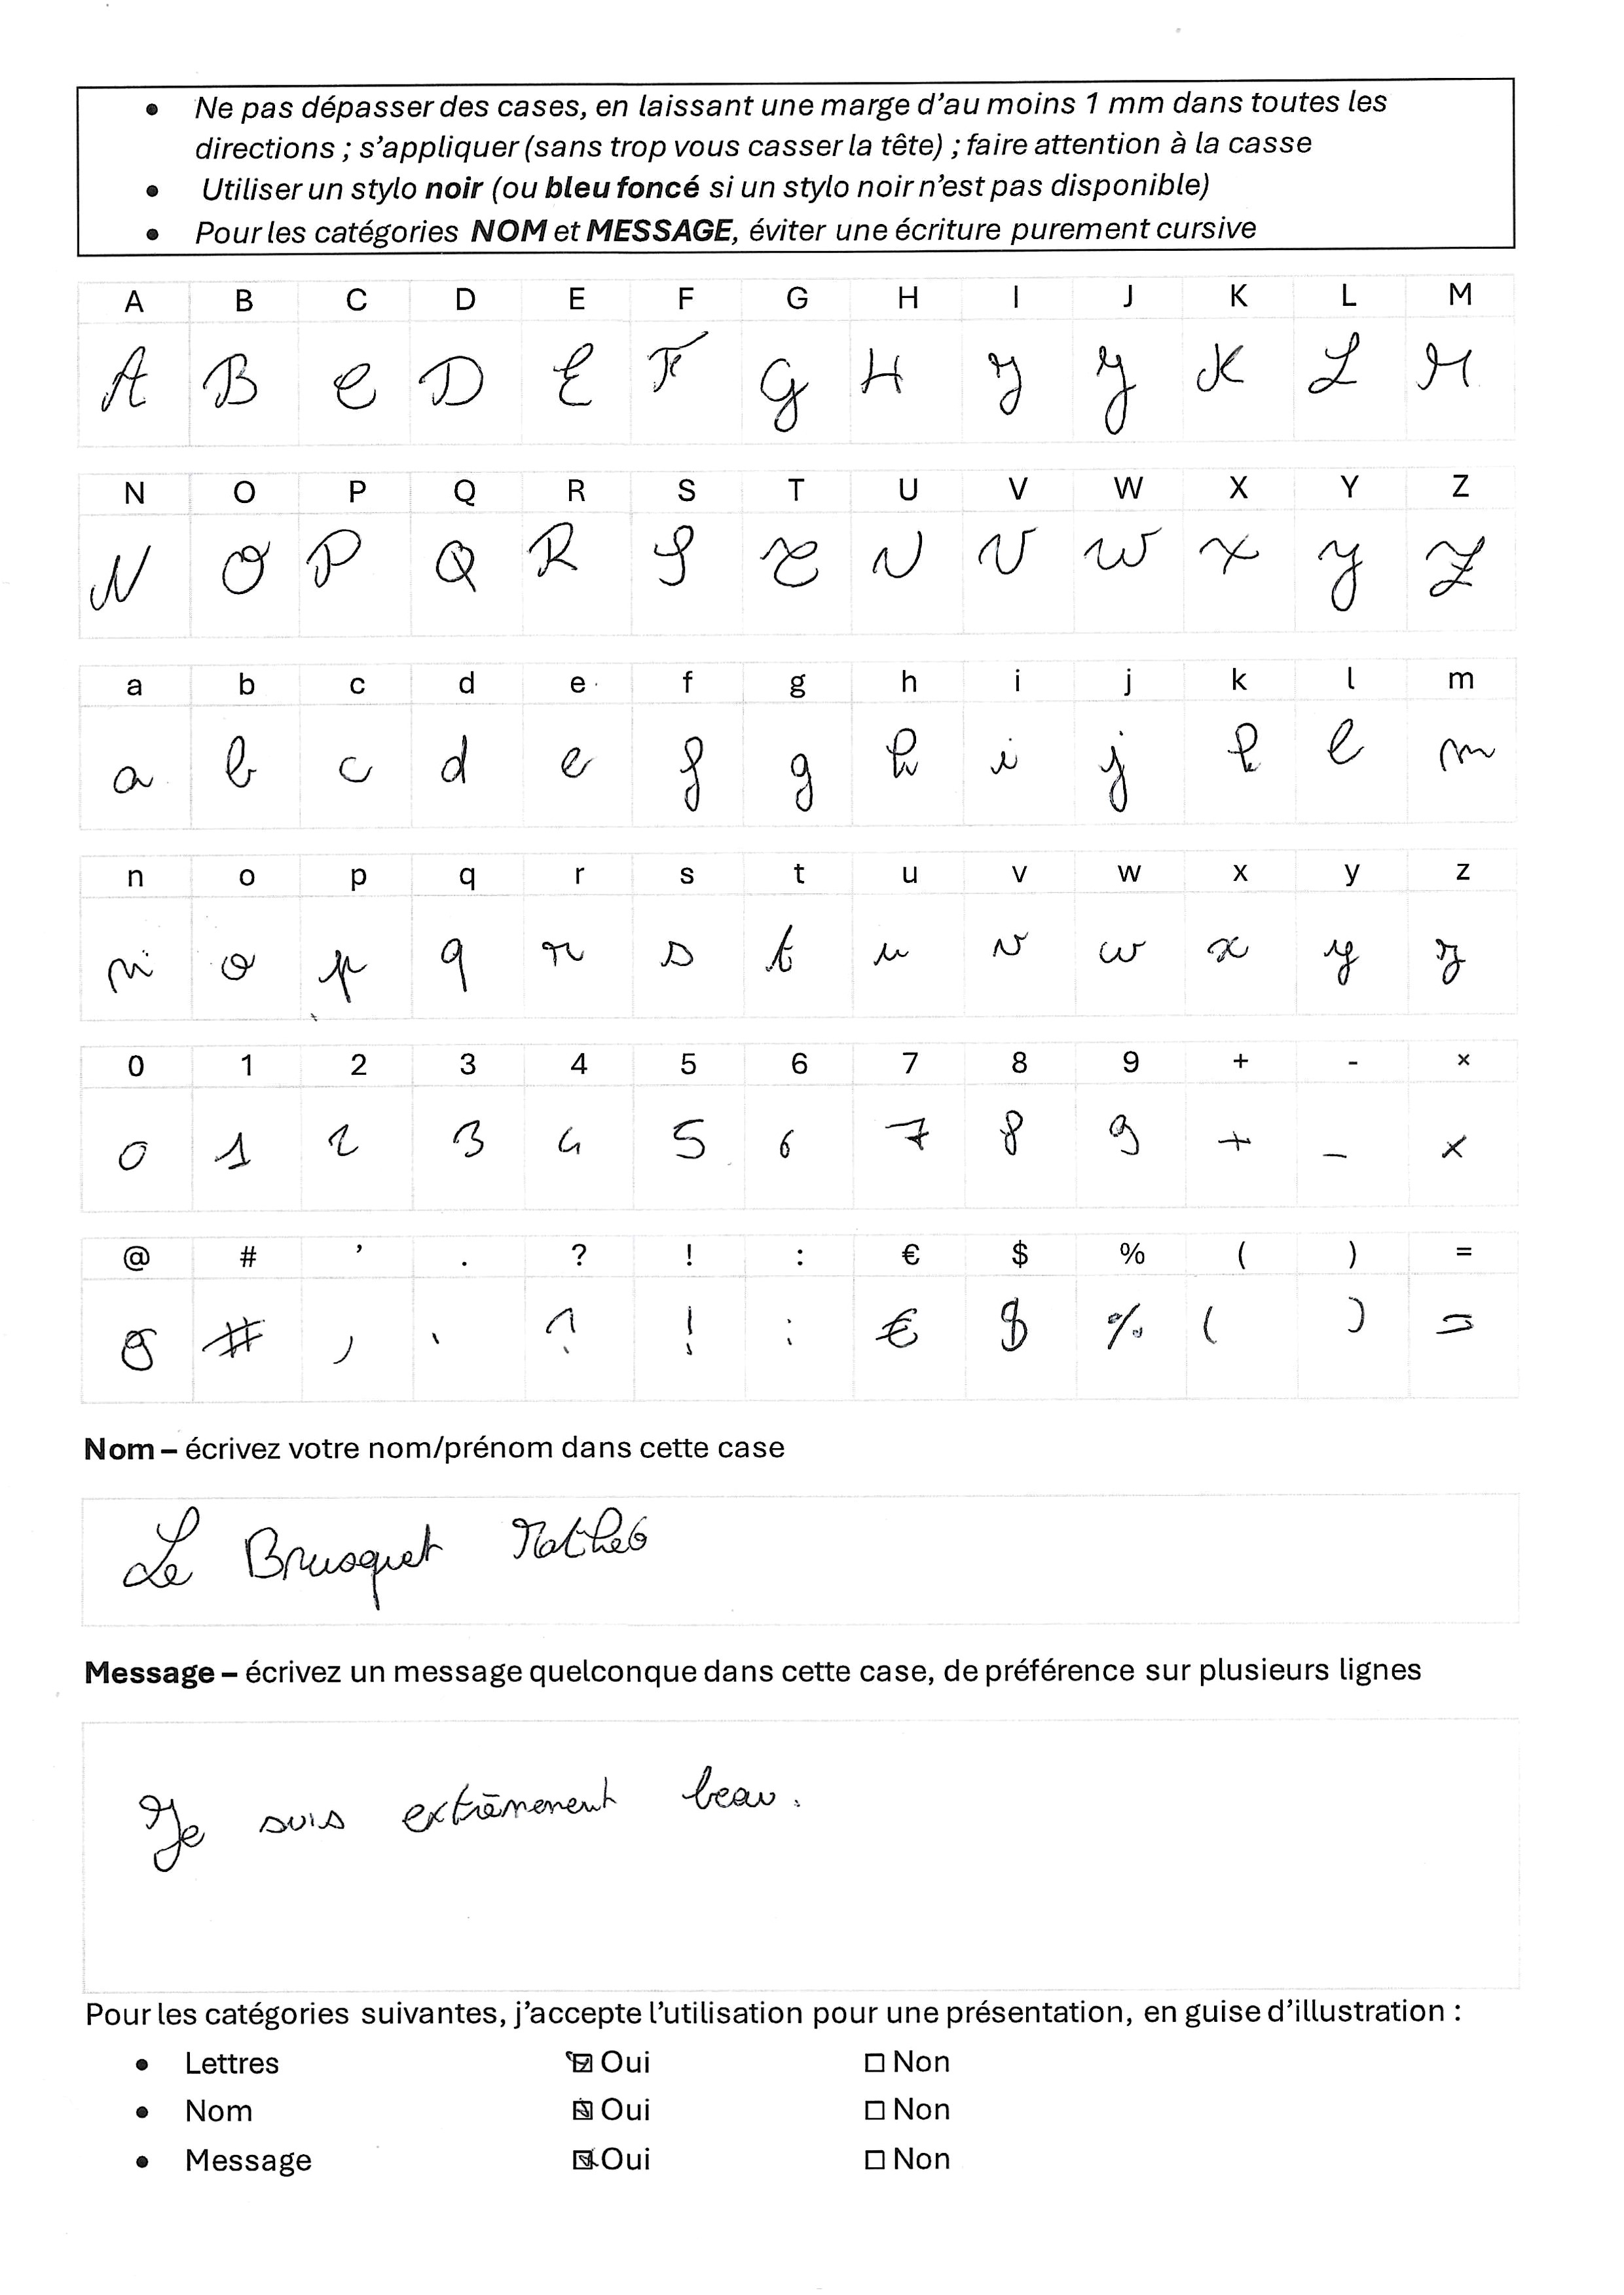 • Ne pas dépasser des cases, en laissant une marge d'au moins 1 mm dans toutes les
directions ; s'appliquer (sans trop vous casser la tête) ; faire attention à la casse
• Utiliser un stylo noir (ou bleu foncé si un stylo noir n'est pas disponible)
• Pour les catégories NOM et MESSAGE, éviter une écriture purement cursive
A B C D E F G H I J K L M
A B C D E F G H I J K L M
N O P Q R S T U V W X Y Z
N O P Q R S T U V W X Y Z
a b c d e f g h i j k l m
a b c d e f g h i j k l m
n o p q r s t u v w x y z
n o p q r s t u v w x y z
0 1 2 3 4 5 6 7 8 9 + - ×
0 1 2 3 4 5 6 7 8 9 + - ×
@ # ’ . ? ! : € $ % ( ) =
@ # , . ? ! : € $ % ( ) =
Nom – écrivez votre nom/prénom dans cette case
Le Brusquet Mathéo
Message – écrivez un message quelconque dans cette case, de préférence sur plusieurs lignes
Je suis extrêmement beau.
Pour les catégories suivantes, j'accepte l'utilisation pour une présentation, en guise d'illustration :
• Lettres ☑ Oui ☐ Non
• Nom ☑ Oui ☐ Non
• Message ☑ Oui ☐ Non